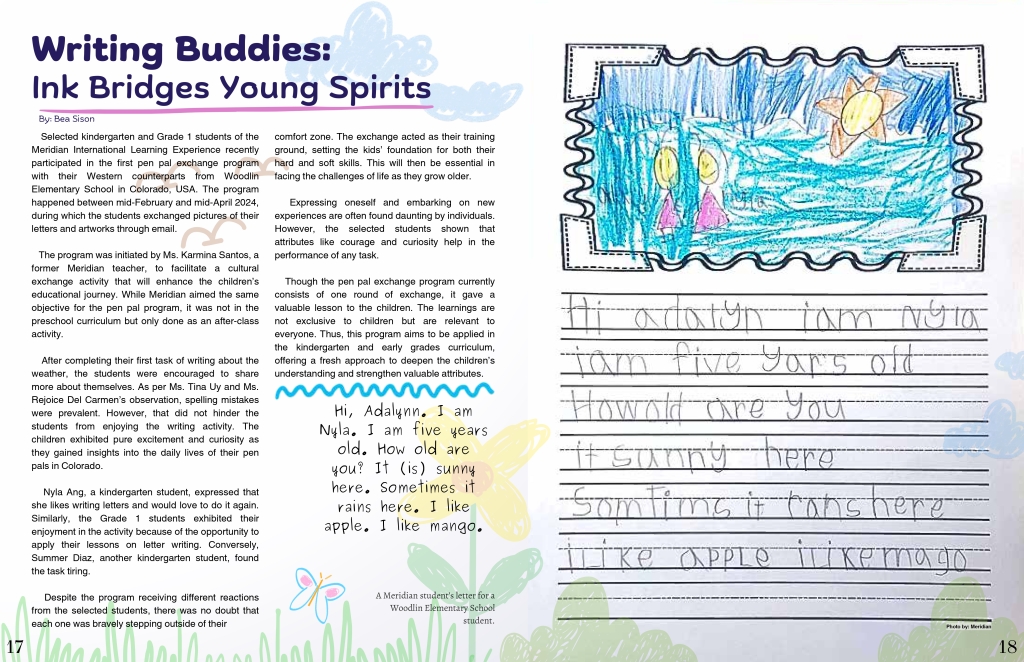 Writing Buddies:
Ink Bridges Young Spirits
By: Bea Sison
Selected kindergarten and Grade 1 students of the
Meridian International Learning Experience recently
participated in the first pen pal exchange program
with their Western counterparts from Woodlin
Elementary School in Colorado, USA. The program
happened between mid-February and mid-April 2024,
during which the students exchanged pictures of their
letters and artworks through email.
The program was initiated by Ms. Karmina Santos, a
former Meridian teacher, to facilitate a cultural
exchange activity that will enhance the children's
educational journey. While Meridian aimed the same
objective for the pen pal program, it was not in the
preschool curriculum but only done as an after-class
activity.
After completing their first task of writing about the
weather, the students were encouraged to share
more about themselves. As per Ms. Tina Uy and Ms.
Rejoice Del Carmen's observation, spelling mistakes
were prevalent. However, that did not hinder the
students from enjoying the writing activity. The
children exhibited pure excitement and curiosity as
they gained insights into the daily lives of their pen
pals in Colorado.
Nyla Ang, a kindergarten student, expressed that
she likes writing letters and would love to do it again.
Similarly, the Grade 1 students exhibited their
enjoyment in the activity because of the opportunity to
apply their lessons on letter writing. Conversely,
Summer Diaz, another kindergarten student, found
the task tiring.
Despite the program receiving different reactions
from the selected students, there was no doubt that
each one was bravely stepping outside of their
comfort zone. The exchange acted as their training
ground, setting the kids' foundation for both their
hard and soft skills. This will then be essential in
facing the challenges of life as they grow older.
Expressing oneself and embarking on new
experiences are often found daunting by individuals.
However, the selected students shown that
attributes like courage and curiosity help in the
performance of any task.
Though the pen pal exchange program currently
consists of one round of exchange, it gave a
valuable lesson to the children. The learnings are
not exclusive to children but are relevant to
everyone. Thus, this program aims to be applied in
the kindergarten and early grades curriculum,
offering a fresh approach to deepen the children's
understanding and strengthen valuable attributes.
Hi, Adalynn. I am
Nyla. I am five years
old. How old are
you? It (is) sunny
here. Sometimes it
rains here. I like
apple. I like mango.
A Meridian student's letter for a
Woodlin Elementary School
student.
17
Nyla
Hi adalyn iam Nyla
iam five yars old
Howold are you
it sunny here
Somtims it rans here
iLike apple iLikemago
Photo by: Meridian
18